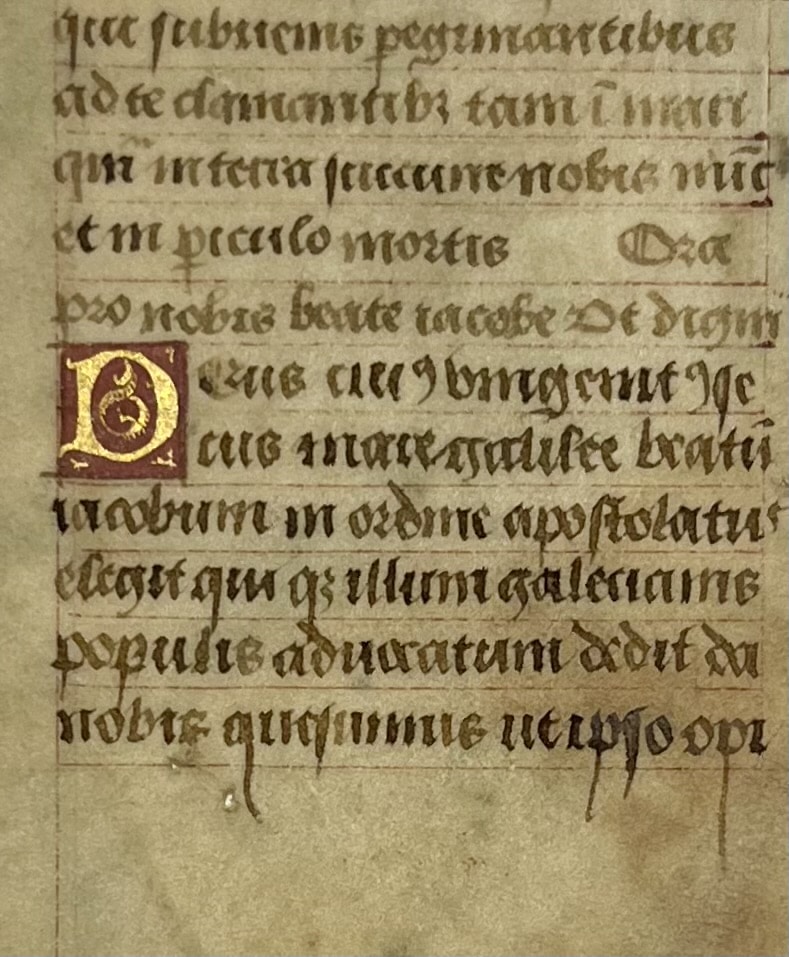 qui subuenis pegrinantibus
ad te clamantibꝫ tam ī mari
qm̄ in terra succurre nobis nūc
et in piculo mortis Ora
pro nobis beate iacobe Vt digni
Deus cuiꝯ vnigenitꝯ se
cus mare galilee beatū
iacobum in ordine apostolatus
elegit qui qꝫ illum galecianis
populis aduocatum dedit da
nobis quesumus ut ipso opi